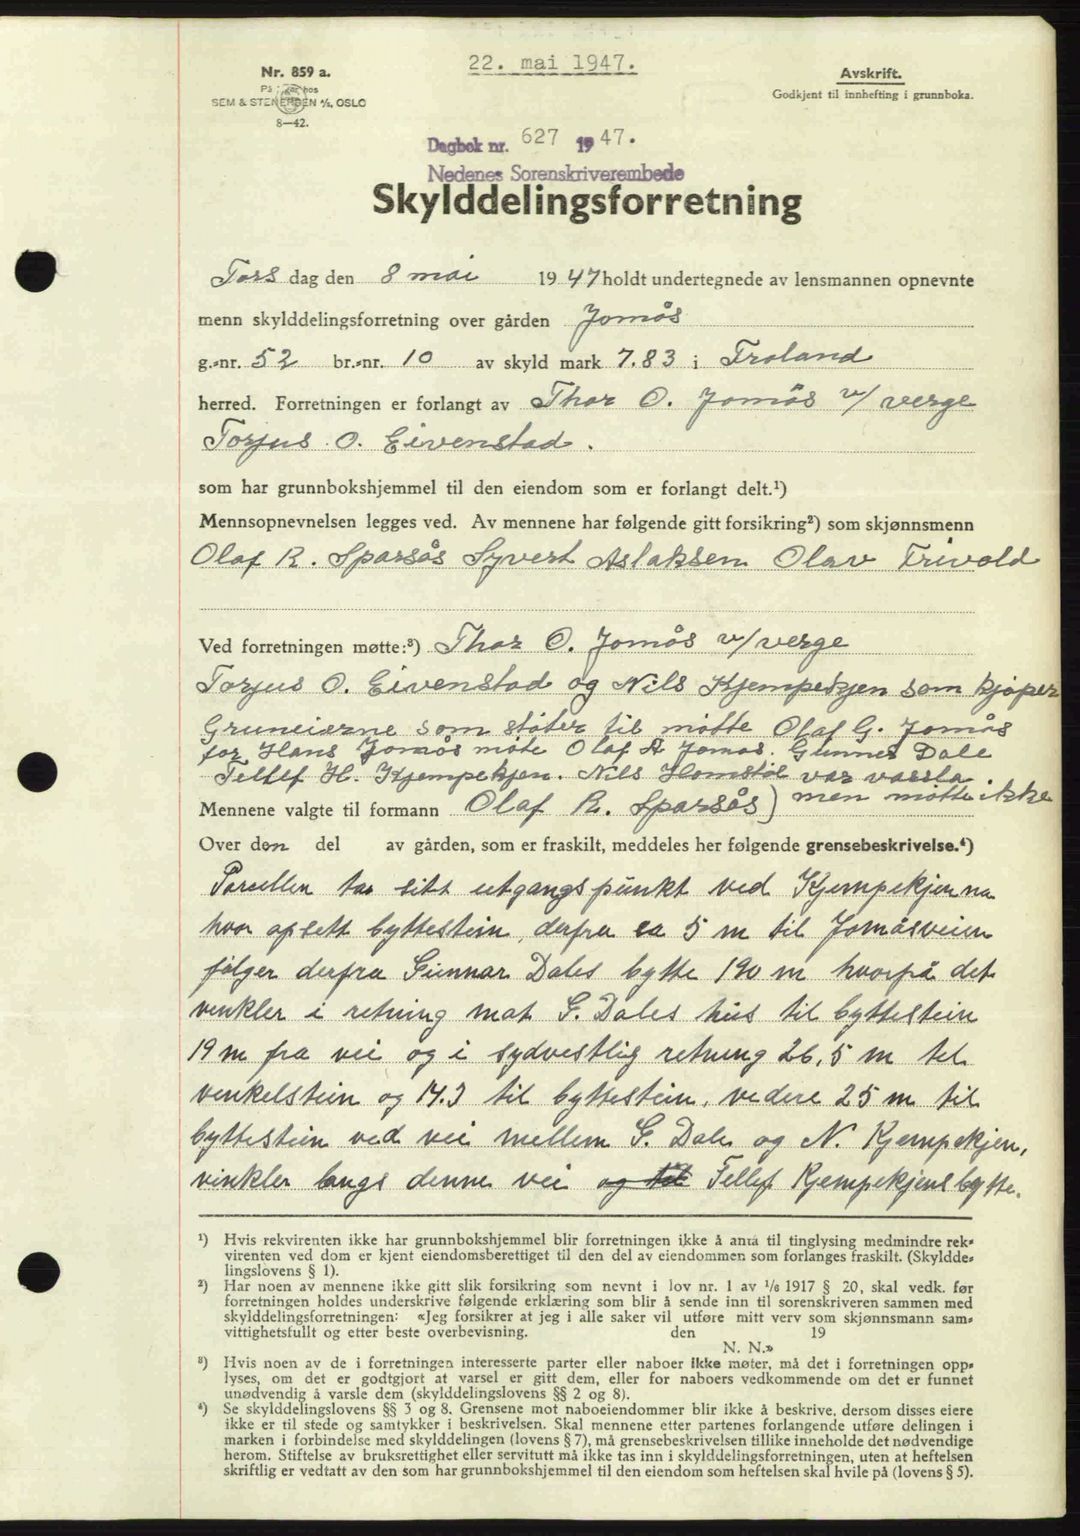 22. mai 1947.
Nr. 859 a.
SEM & STENERSEN A/S, OSLO
8—42.
Avskrift.
Godkjent til innhefting i grunnboka.
Dagbok nr. 627 1947.
Nedenes Sorenskriverembede
Skylddelingsforretning
Tors dag den 8 mai 1947 holdt undertegnede av lensmannen opnevnte
menn skylddelingsforretning over gården Jomås
g.-nr. 52 br.-nr. 10 av skyld mark 7.83 i Froland
herred. Forretningen er forlangt av Thor O. Jomås v/ verge
Torjus O. Eivenstad.
som har grunnbokshjemmel til den eiendom som er forlangt delt.¹)
Mennsopnevnelsen legges ved. Av mennene har følgende gitt forsikring²) som skjønnsmenn
Olaf R. Sparsås Syvert Aslaksen Olav Trivold
Ved forretningen møtte:³) Thor O. Jomås v/verge
Torjus O. Eivenstad og Nils Kjempekjen som kjøper
Gruneierne som støter til møtte Olaf G. Jomås
for Hans Jomås møte Olaf A Jomås. Gunner Dale
Tellef H. Kjempekjen. Nils Homstøl var varsla.
Mennene valgte til formann Olaf R. Sparsås) men møtte ikke
Over den del av gården, som er fraskilt, meddeles her følgende grensebeskrivelse.⁴)
Parsellen tar sitt utgangspunkt ved Kjempekjenna
hvor opsett byttestein, derfra ca 5 m til Jomåsveien
følger derfra Gunnar Dales bytte 190 m hvorpå det
vinkler i retning mot G. Dales hus til byttestein
19 m fra vei og i sydvestlig retning 26,5 m til
venkelstein og 14.3 til byttestein, videre 25 m til
byttestein ved vei mellem G. Dale og N. Kjempekjen,
vinkler langs denne vei og til Tellef Kjempekjens bytte.
¹) Hvis rekvirenten ikke har grunnbokshjemmel blir forretningen ikke å anta til tinglysing medmindre rek-
virenten ved dom er kjent eiendomsberettiget til den del av eiendommen som forlanges fraskilt. (Skyldde-
lingslovens § 1).
²) Har noen av mennene ikke gitt slik forsikring som nevnt i lov nr. 1 av ¹/₆ 1917 § 20, skal vedk. før
forretningen holdes underskrive følgende erklæring som blir å sende inn til sorenskriveren sammen med
skylddelingsforretningen: «Jeg forsikrer at jeg i alle saker vil utføre mitt verv som skjønnsmann sam-
vittighetsfullt og etter beste overbevisning. den 19
N. N.»
³) Hvis noen av de i forretningen interesserte parter eller naboer ikke møter, må det i forretningen opp-
lyses, om det er godtgjort at varsel er gitt dem, eller for naboers vedkommende om det er funnet
unødvendig å varsle dem (skylddelingslovens §§ 2 og 8).
⁴) Se skylddelingslovens §§ 3 og 8. Grensene mot naboeiendommer blir ikke å beskrive, dersom disses eiere
ikke er til stede og samtykker i beskrivelsen. Skal mennene etter partenes forlangende utføre delingen i
marken i forbindelse med skylddelingen (lovens § 7), må grensebeskrivelsen tillike inneholde det nødvendige
herom. Stiftelse av bruksrettighet eller servitutt må ikke tas inn i skylddelingsforretningen, uten at heftelsen
skriftlig er vedtatt av den som har grunnbokshjemmel til den eiendom som heftelsen skal hvile på (lovens § 5).